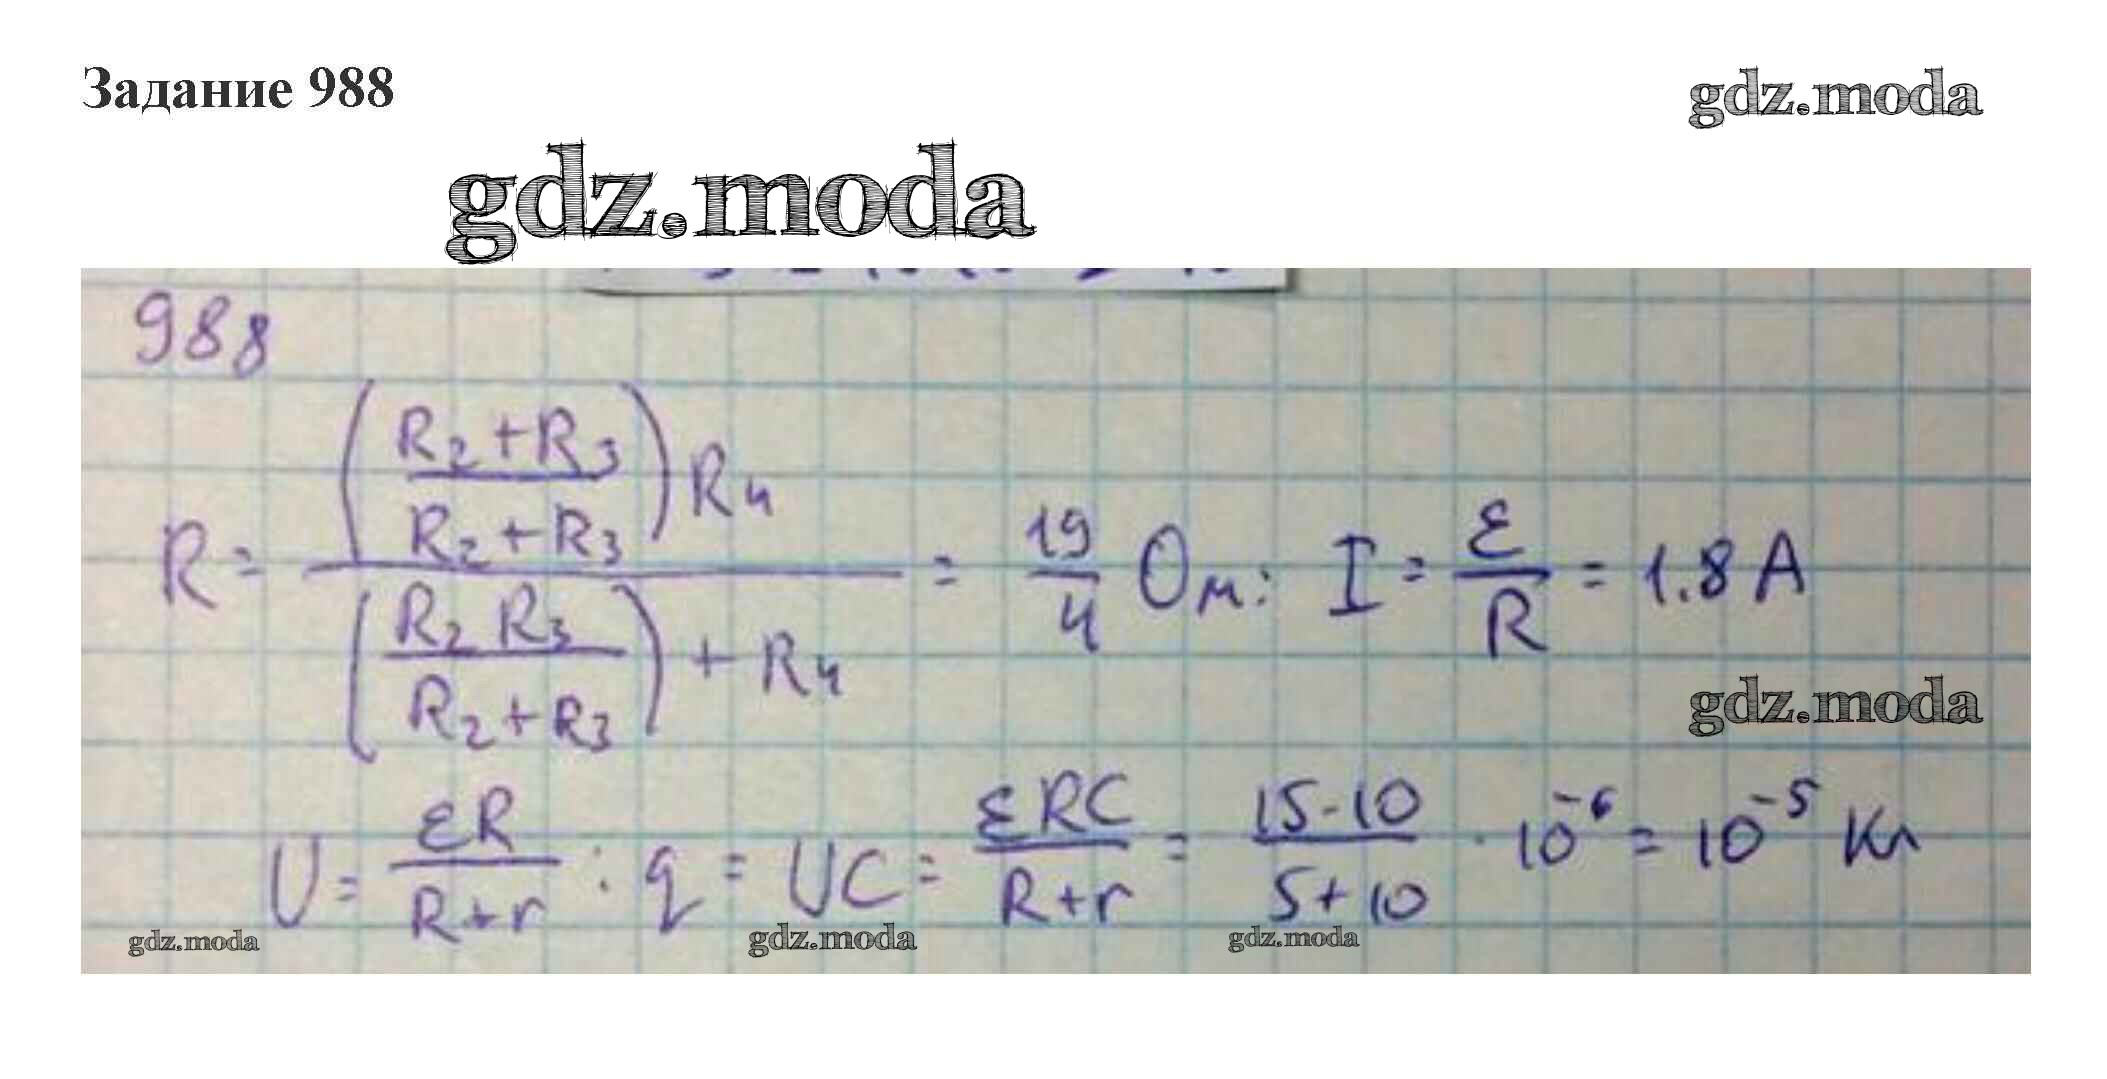 Задание 988
gdz.moda
gdz.moda
988
R = ((R2+R3)/(R2+R3))R4 / ((R2 R3)/(R2+R3)) + R4 = 19/4 Ом: I = ε/R = 1.8 A
gdz.moda
U = εR/(R+r) : q = UC = εRC/(R+r) = 15-10/5+10 · 10^-6 = 10^-5 Кл
gdz.moda
gdz.moda
gdz.moda